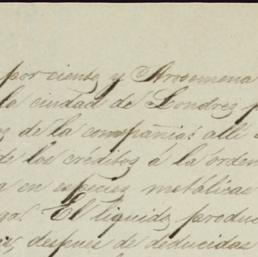 por ciento y Arosemena
la ciudad de Londres
de la compañia: allí
de los créditos á la orden
en especies metálicas
El líquido produc
después de deducidas